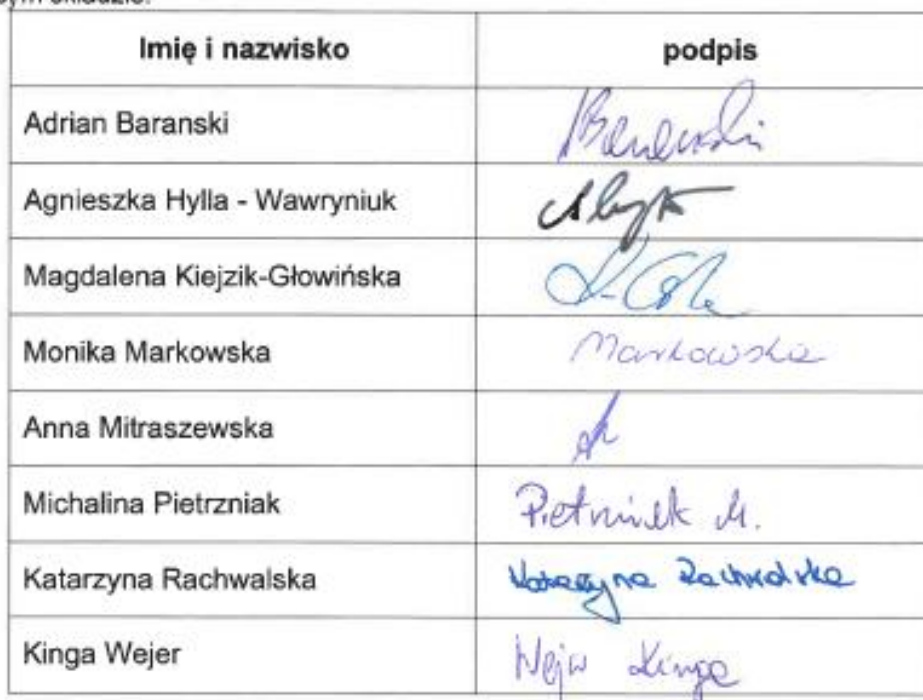 Imię i nazwisko podpis
Adrian Baranski
Agnieszka Hylla - Wawryniuk
Magdalena Kiejzik-Głowińska
Monika Markowska Markowska
Anna Mitraszewska
Michalina Pietrzniak Pietrzniak M.
Katarzyna Rachwalska Katarzyna Rachwalska
Kinga Wejer Wejer Kinga